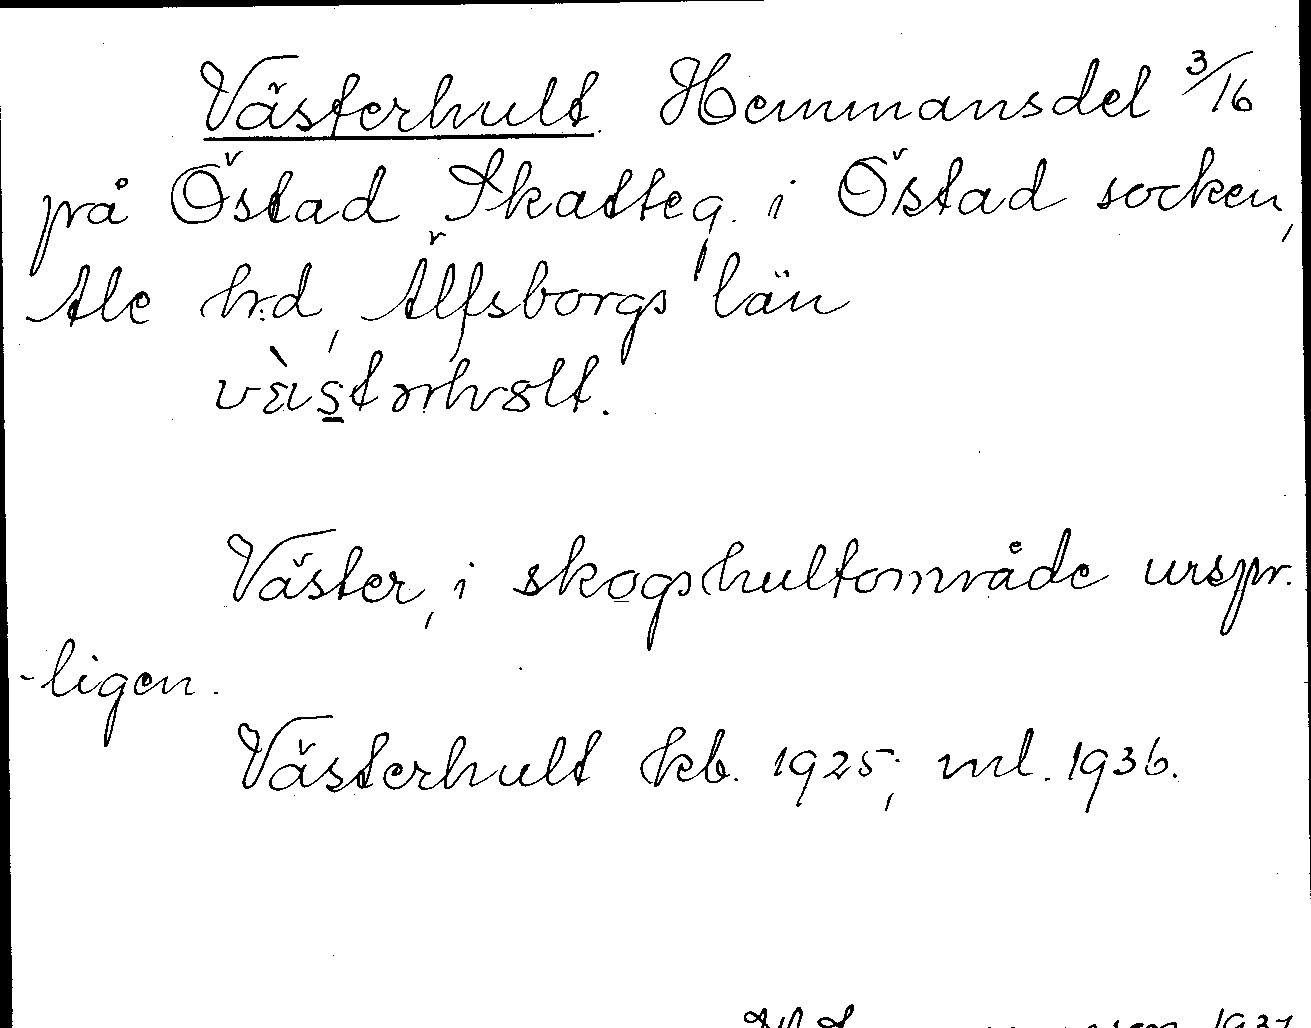 Västerhult. Hemmansdel 3/16
på Östad Skatteg. i Östad socken,
Ale h:d, Älfsborgs län
Väster, i skogshultområde urspr.
-ligen.
Västerhult kb. 1925; ml. 1936.
1937